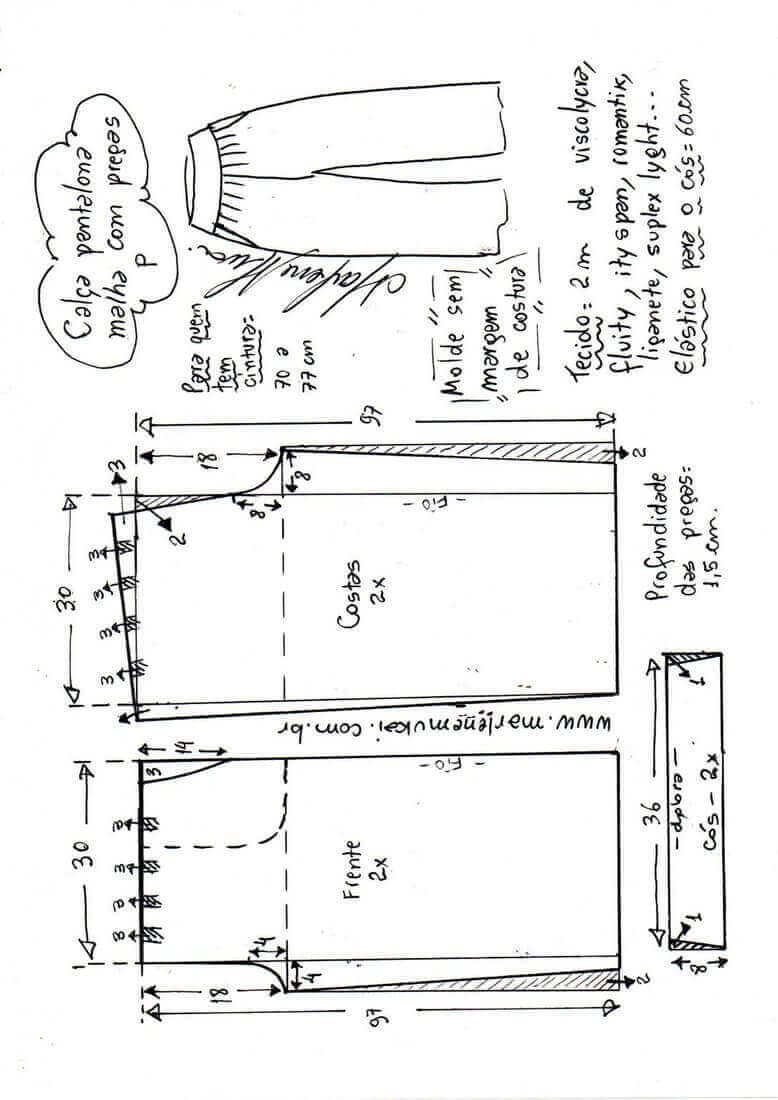 Calça pantalona
malha com pregas
P
Para quem
tem
cintura=
70 a
77 cm
Molde sem
margem
de costura
Tecido = 2 m de viscolycra,
fluity, ity span, romantix,
liganete, suplex lyght...
Elástico para o cós = 60cm
97
18
3
30
2
8
8
3
3
3
3
Costas
2x
- Fio -
2
Profundidade
das pregas:
1,5 cm.
www.marlenemukai.com.br
14
3
30
3
3
3
3
Frente
2x
- Fio -
4
4
18
97
2
36
- dobra -
cós - 2x
1
1
8